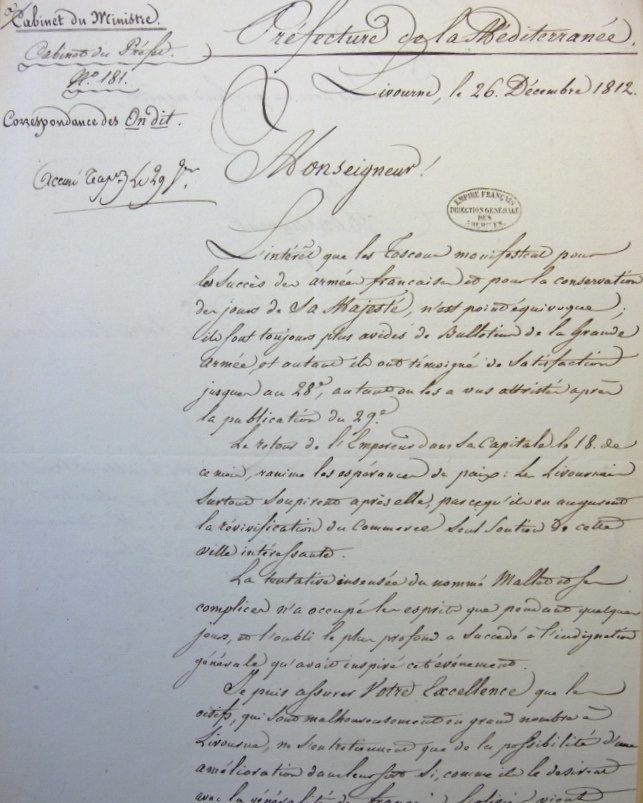 Cabinet du Ministre.
Cabinet du Préfet.
N.º 181.
Correspondance des On dit.
le 29
Préfecture de la Méditerranée.
Livourne, le 26. Décembre 1812.
Monseigneur!
EMPIRE FRANÇAIS
DIRECTION GÉNÉRALE
DES
ARCHIVES.
L'intérêt que les Toscans manifestent pour
les succès des armées françaises et pour la conservation
des jours de Sa Majesté, n'est point équivoque;
ils sont toujours plus avides de Bulletins de la Grande
armée, et autant ils ont témoigné de satisfaction
jusques au 28.e, autant on les a vus attristés après
la publication du 29.e
Le retour de l'Empereur dans Sa Capitale le 18. de
ce mois, ranime les espérances de paix: les Livournais
surtout soupirent après elle, parcequ'ils en augurent
la révivification du Commerce seul soutien de cette
ville intéressante.
La tentative insensée du nommé Mallet et ses
complices n'a occupé les esprits que pendant quelques
jours, et l'oubli le plus profond a succédé à l'indignation
générale qu'avait inspiré cet événement.
Je puis assurer Votre Excellence que les
oisifs, qui sont malheureusement en grand nombre à
Livourne, ne s'entretiennent que de la possibilité d'une
amélioration dans leur sort si, comme ils le desirent
avec la généralité des français,